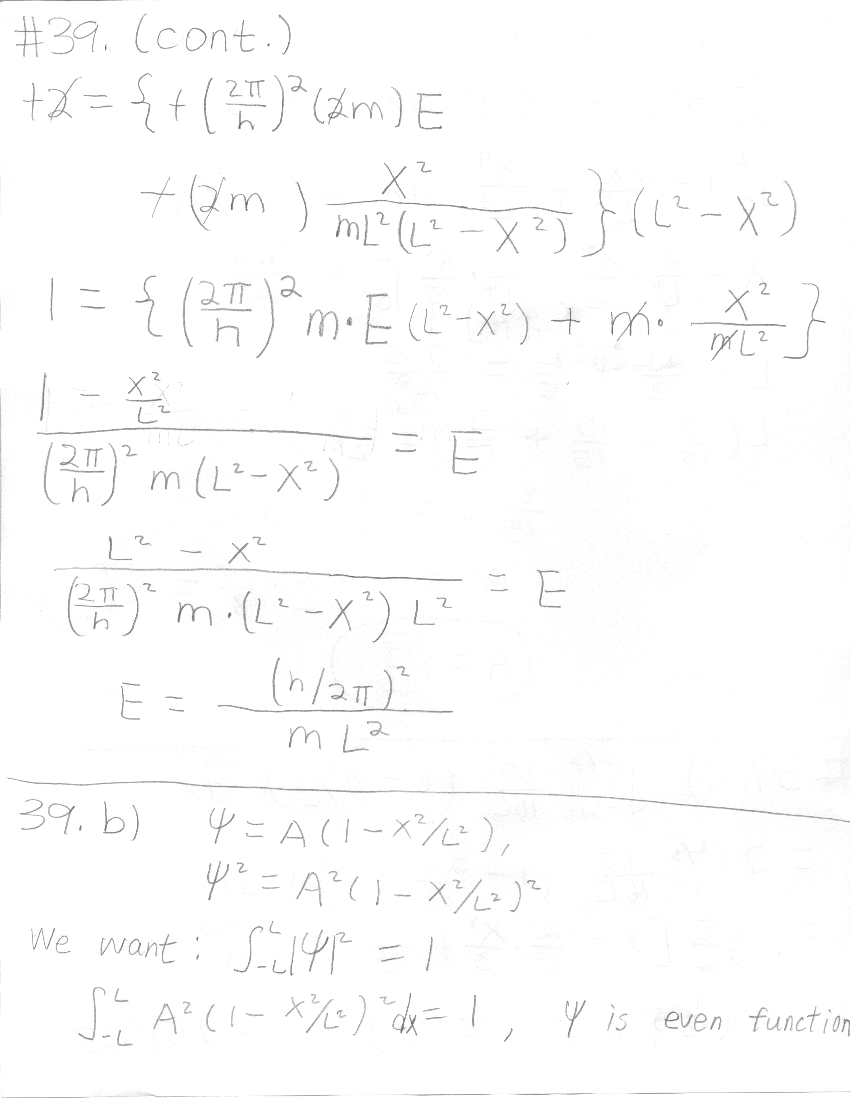 #39. (cont.)
+2 = { + (2π/h)² (2m) E
+ (2m ) X² / mL² (L² − X²) } (L² − X²)
1 = { (2π/h)² m · E (L² − X²) + m · X² / mL² }
1 − X²/L² / (2π/h)² m (L² − X²) = E
L² − X² / (2π/h)² m · (L² − X²) L² = E
E = (h/2π)² / m L²
39. b) Ψ = A (1 − X²/L²),
Ψ² = A² (1 − X²/L²)²
We want : ∫₋L^L |Ψ|² = 1
∫₋L^L A² (1 − X²/L²)² dx = 1 , Ψ is even function